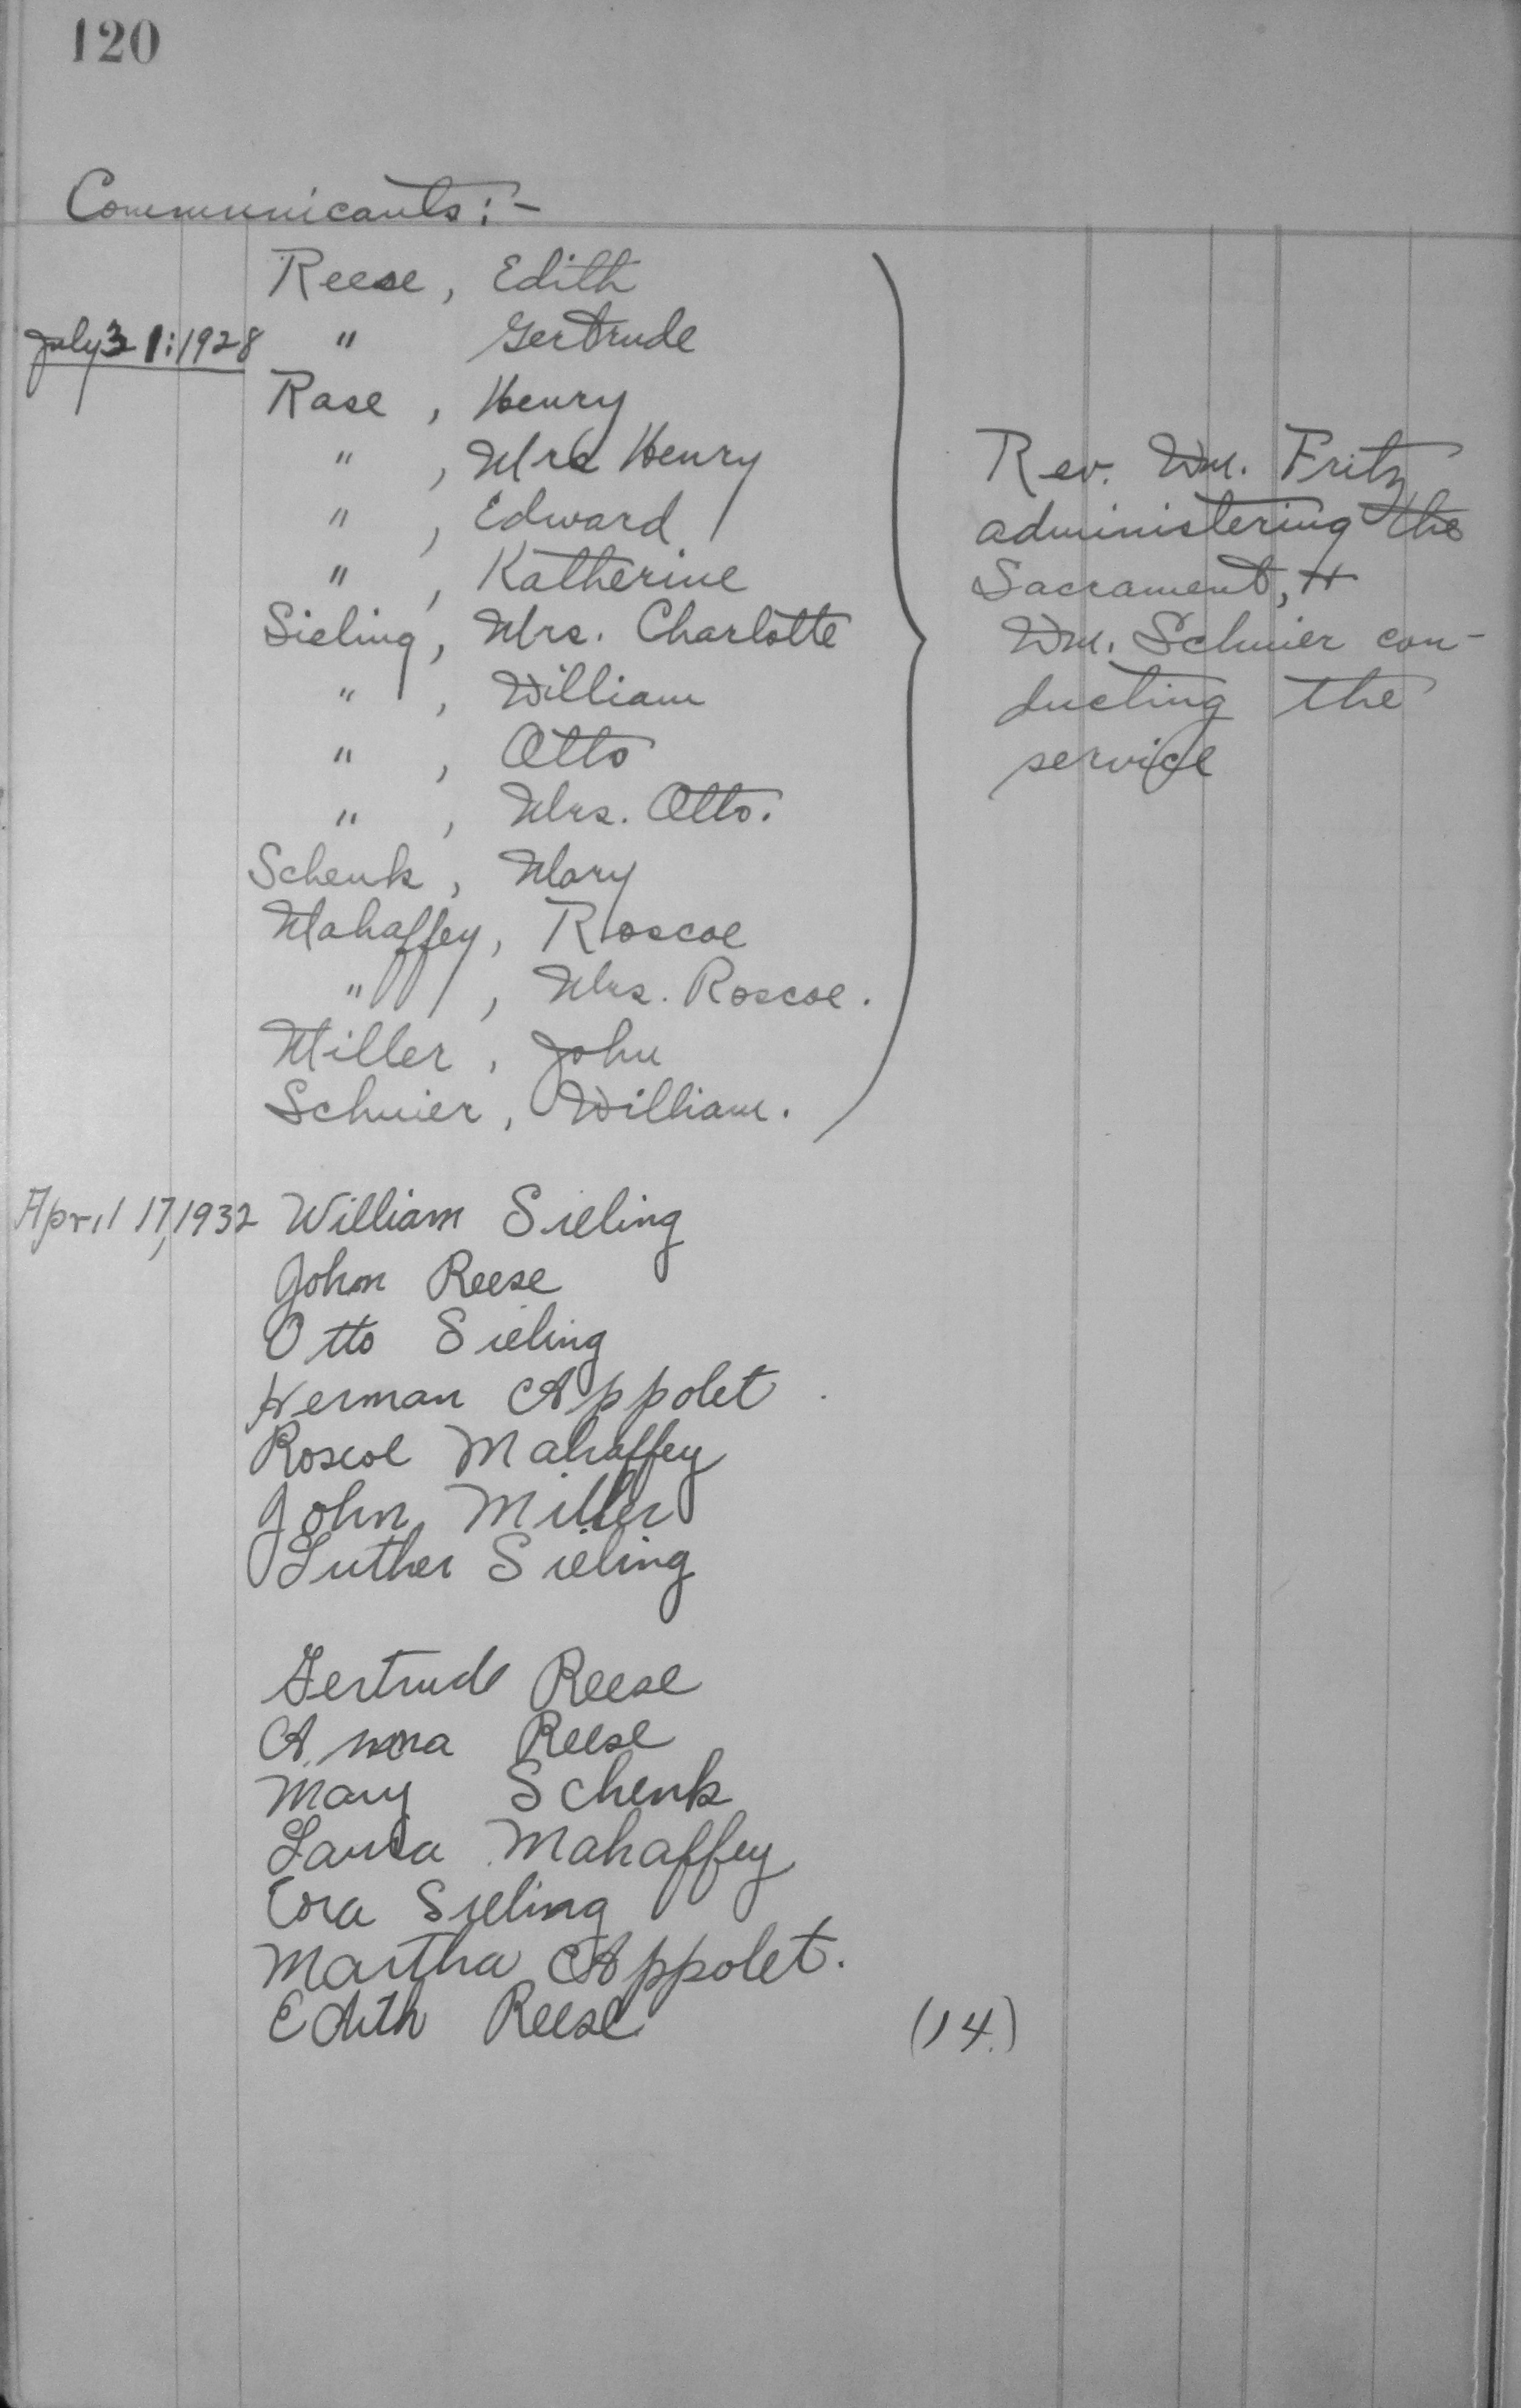 120
Communicants:-
Reese, Edith
July 31:1928 " Gertrude
Rase, Henry
" , Mrs Henry
" , Edward
" , Katherine
Sieling, Mrs. Charlotte
" , William
" , Otto
" , Mrs. Otto.
Schenk, Mary
Mahaffey, Roscoe
" , Mrs. Roscoe.
Miller, John
Schnier, William.
Rev. Wm. Fritz
administering the
Sacrament, +
Wm. Schnier con-
ducting the
service
April 17, 1932 William Sieling
John Reese
Otto Sieling
Herman Appolet
Roscoe Mahaffey
John Miller
Luther Sieling
Gertrude Reese
Anna Reese
Mary Schenk
Laura Mahaffey
Cora Sieling
Martha Appolet.
Edith Reese (14.)